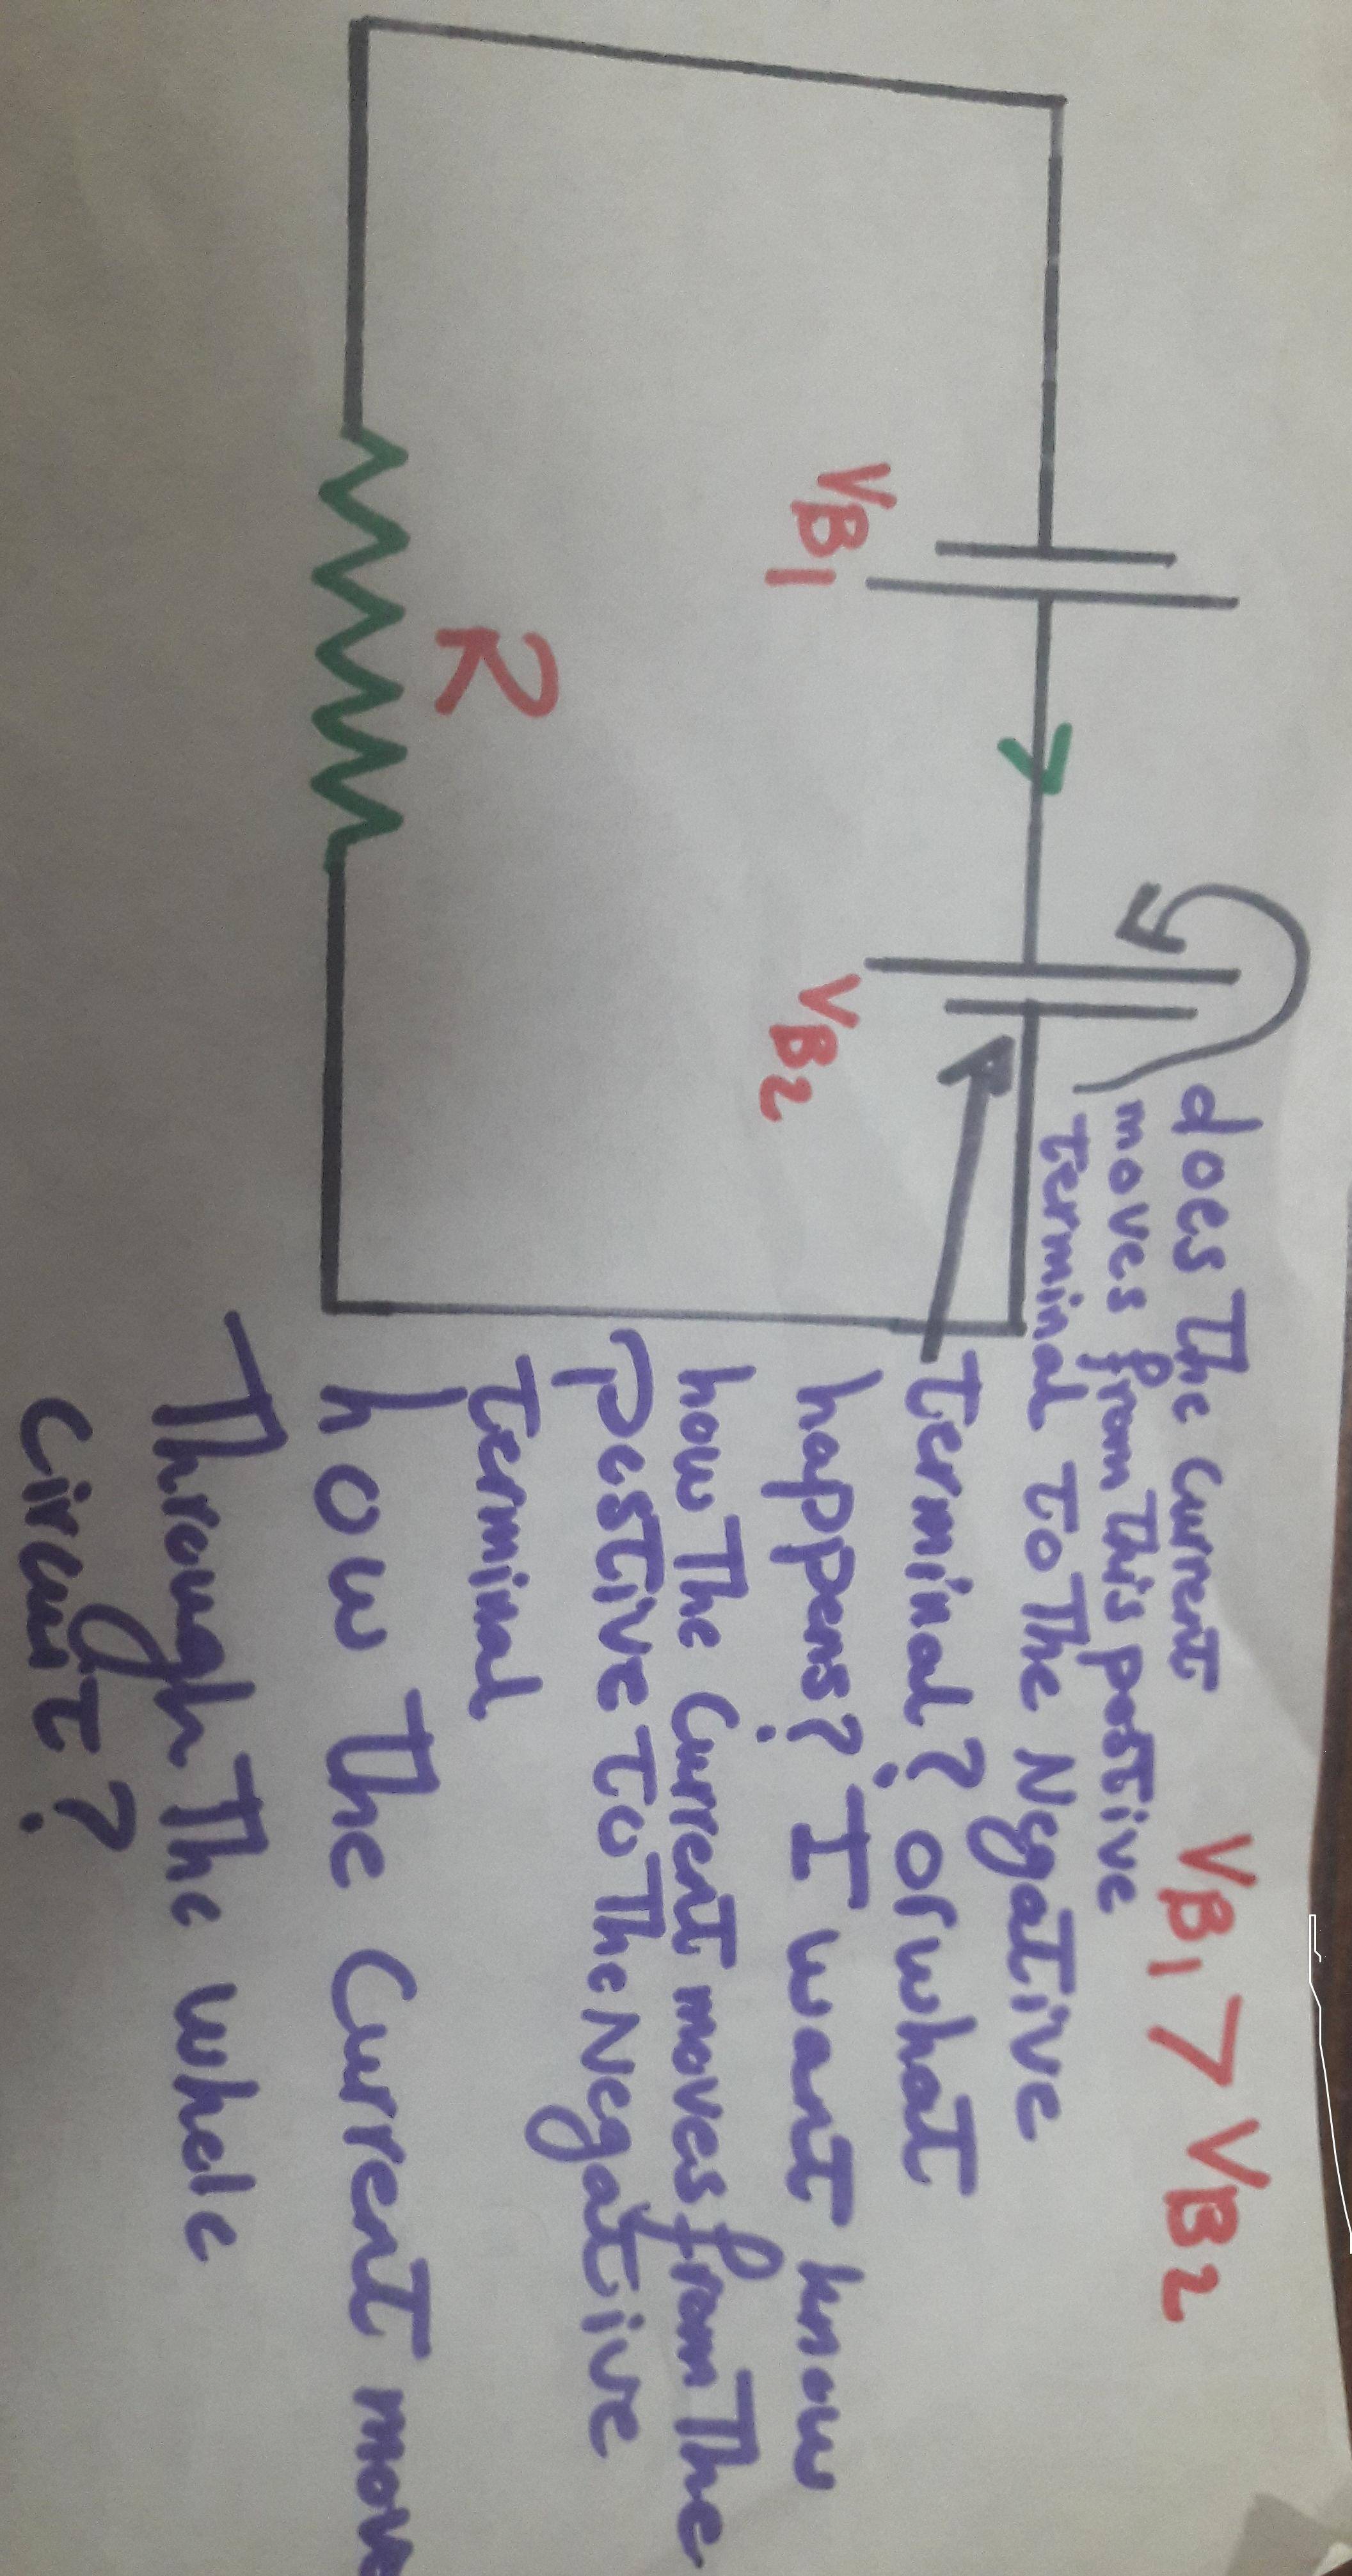 VB1 > VB2
does The Current
moves from This postive
Terminal To The Ngative
Terminal? or what
happens? I want know
how The Current moves from The
Pestive To The Negative
Terminal
how The Current move
Through The whole
circuit?
VB1
VB2
R